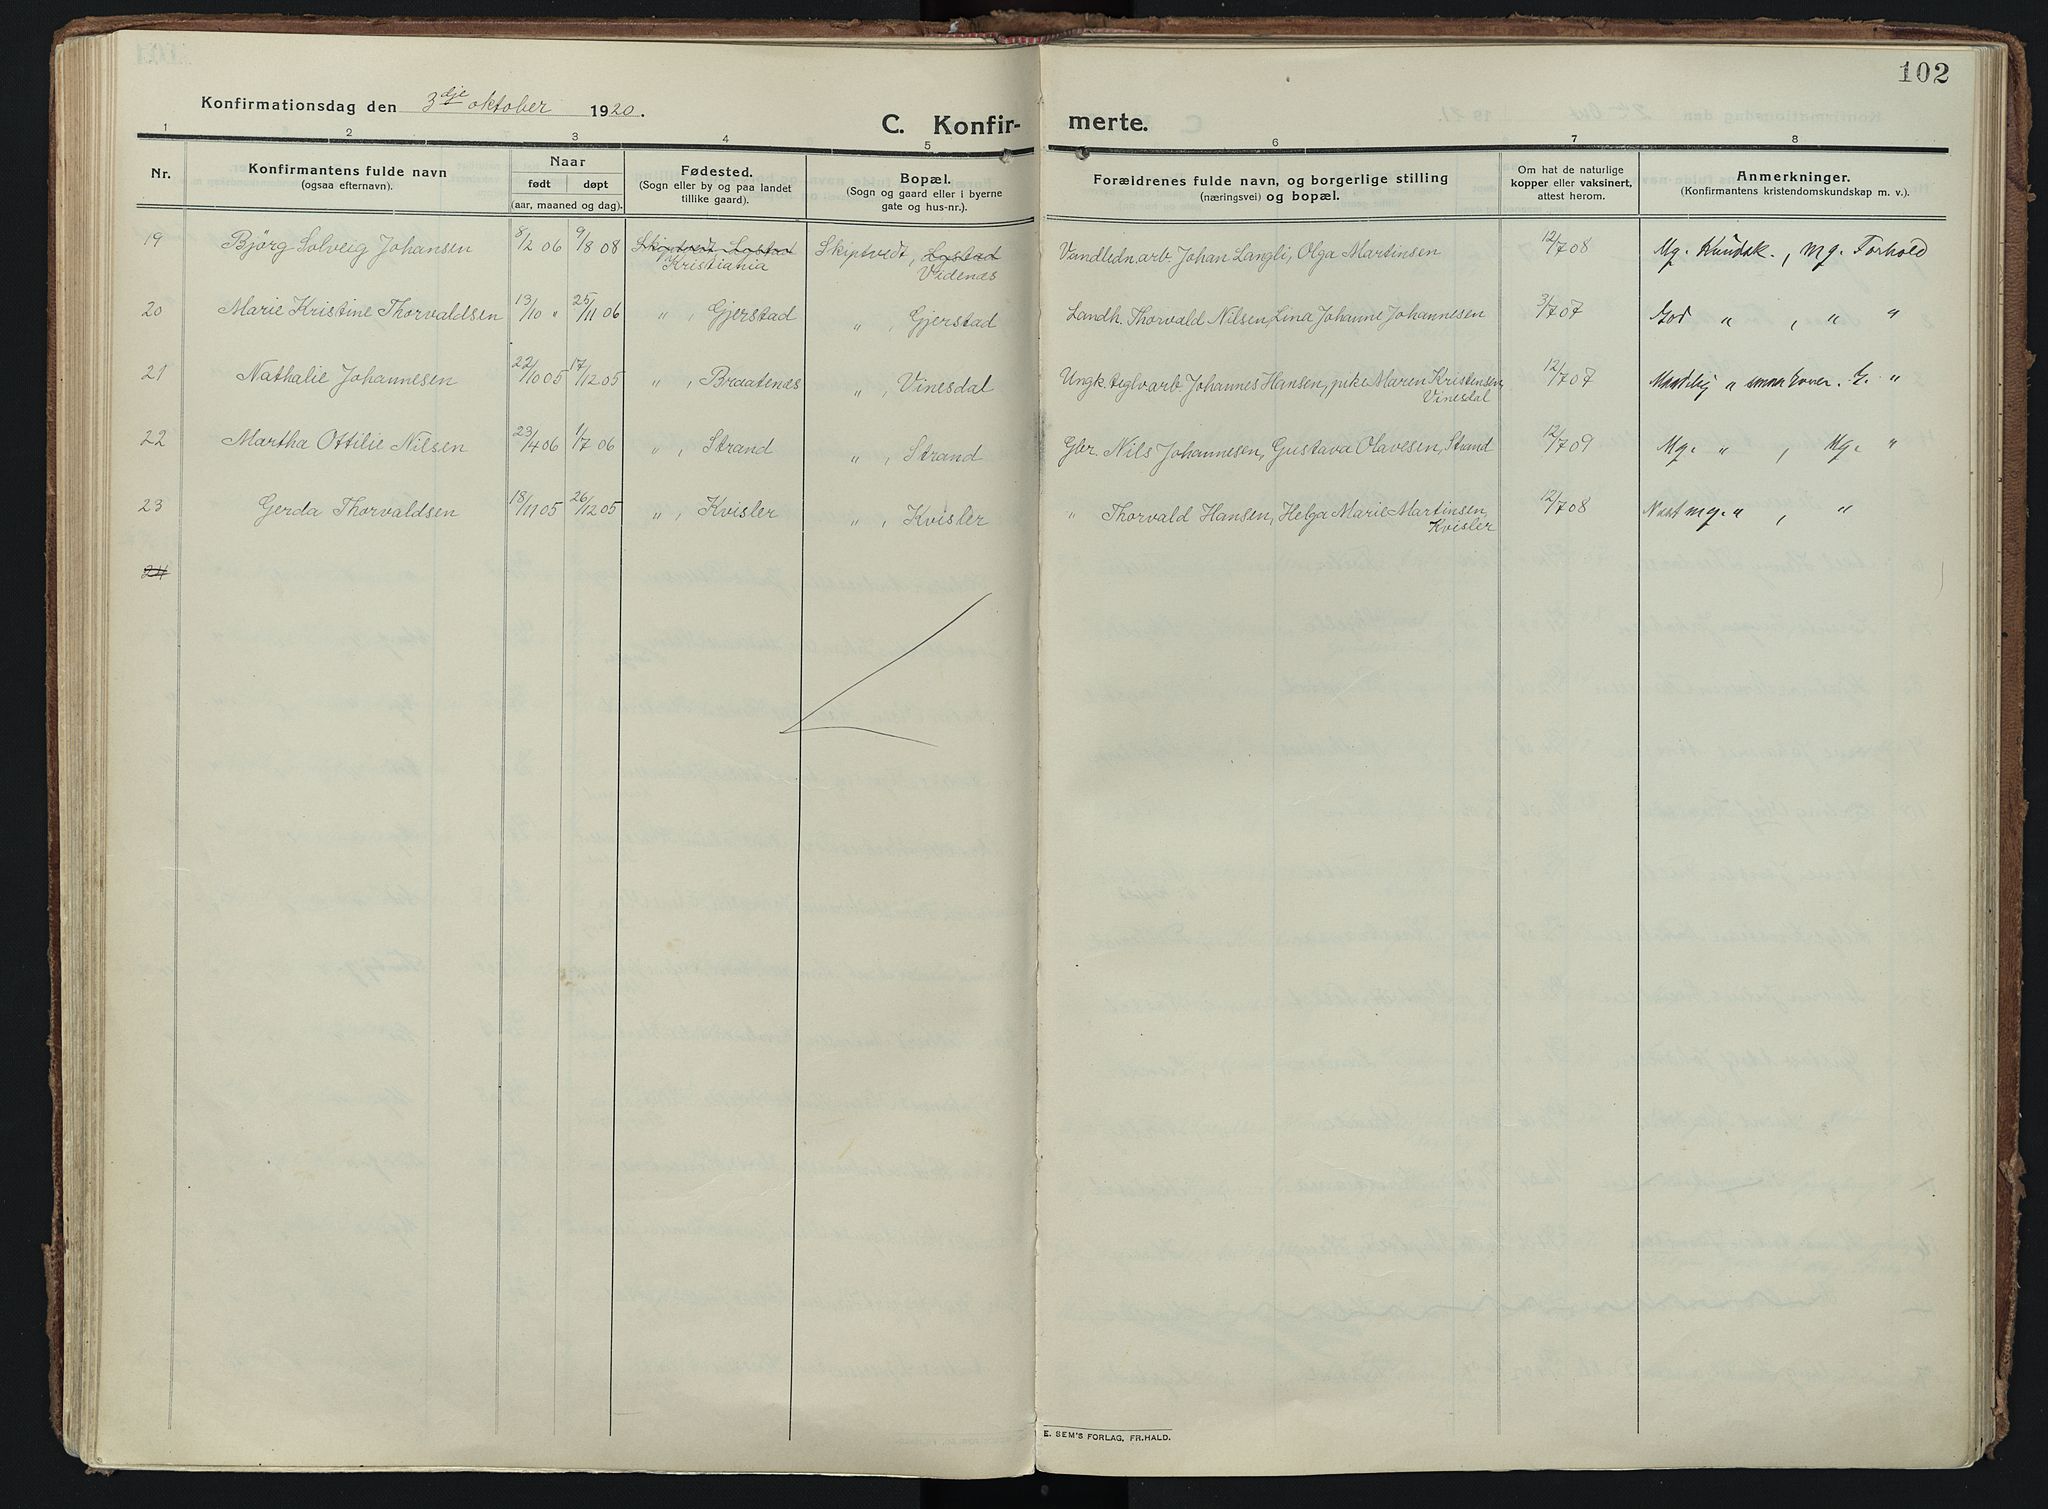 102
Konfirmationsdag den 3dje oktober 1920.
C. Konfir- merte.
1 2 3 4 5 6 7 8
Nr.
Konfirmantens fulde navn
(ogsaa efternavn).
Naar
født døpt
(aar, maaned og dag).
Fødested.
(Sogn eller by og paa landet
tillike gaard).
Bopæl.
(Sogn og gaard eller i byerne
gate og hus-nr.).
Forældrenes fulde navn, og borgerlige stilling
(næringsvei) og bopæl.
Om hat de naturlige
kopper eller vaksinert,
attest herom.
Anmerkninger.
(Konfirmantens kristendomskundskap m. v.).
19 Bjørg Solveig Johansen 8/2 06 9/8 08 Skiptvedt Lystad Skiptvedt, Lystad Vandledn.arb Johan Langli, Olga Martinsen 12/7 08 Mg. Kundsk., mg. Forhold
Kristiania Videnæs
20 Marie Kristine Thorvaldsen 13/10 " 25/11 06 " , Gjerstad " , Gjerstad Landh. Thorvald Nilsen, Lina Johanne Johannesen 3/7 07 God " , " "
21 Nathalie Johannesen 22/10 05 17/12 05 " , Braatenæs " , Vinesdal Ungk. teglv.arb Johannes Hansen, pike Maren Kristensen, 12/7 07 " G. "
Vinesdal
22 Martha Ottilie Nilsen 23/4 06 1/7 06 " , Strand " , Strand Gbr. Nils Johannesen, Gustava Olavesen, Strand 12/7 09 Mg. " , Mg. "
23 Gerda Thorvaldsen 18/11 05 26/12 05 " , Kvisler " , Kvisler " Thorvald Hansen, Helga Marie Martinsen, 12/7 08 Næst mg. " , "
Kvisler
24
E. SEM'S FORLAG, FR.HALD.